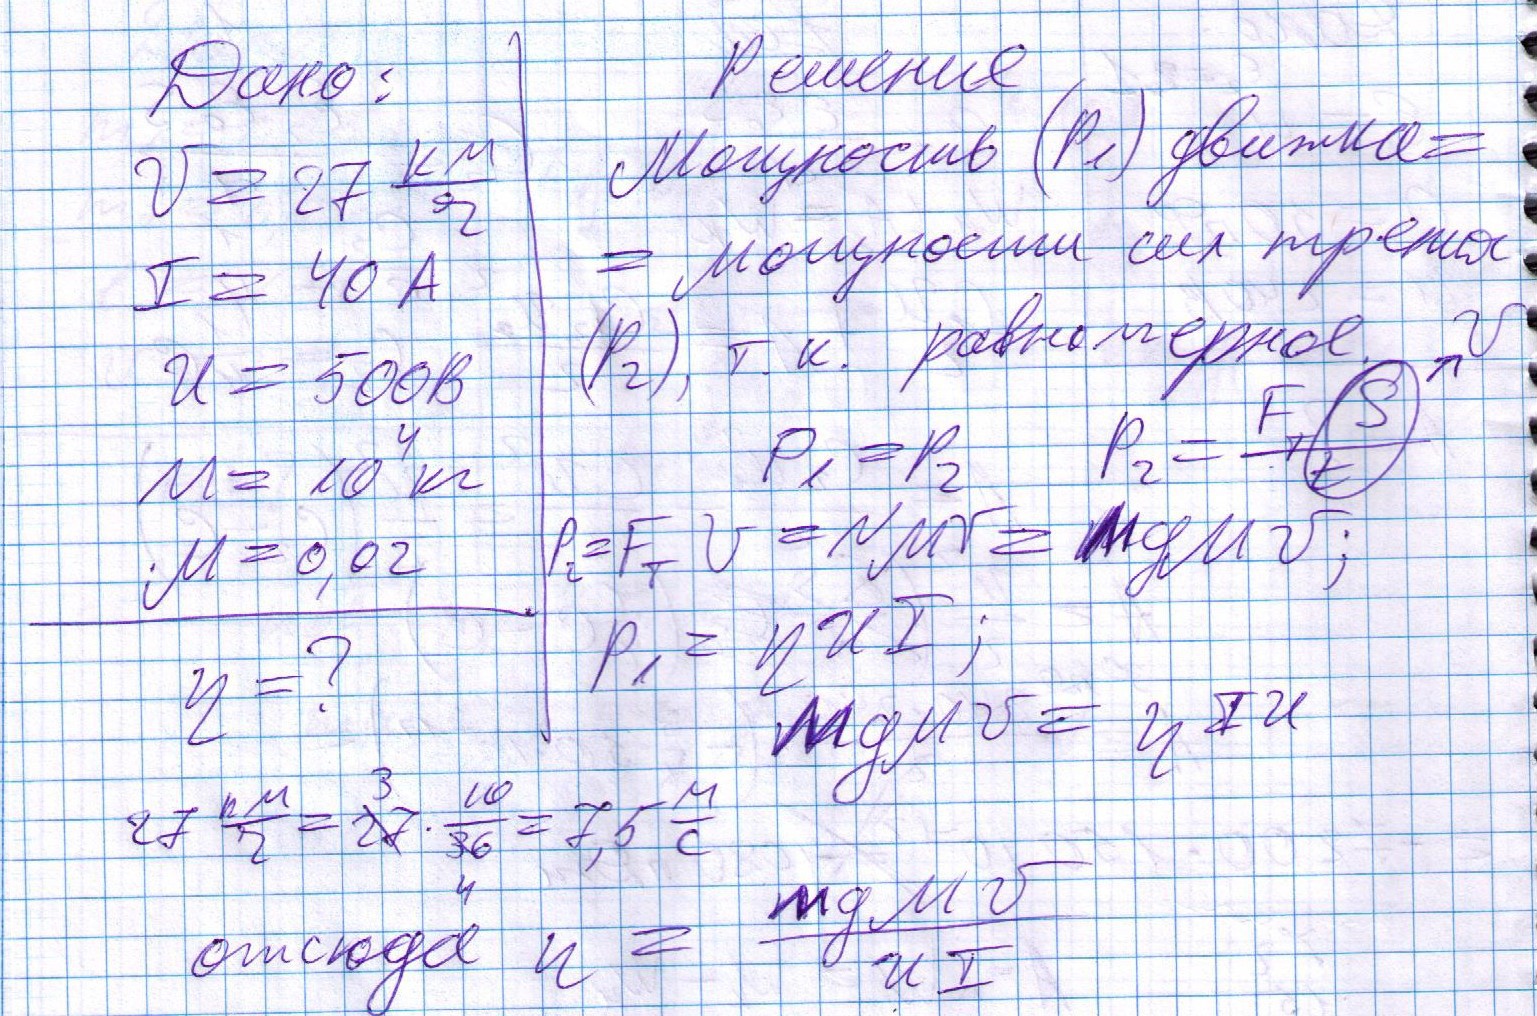 Дано:
V = 27 км/ч
I = 40 А
U = 500В
M = 10⁴ кг
μ = 0,02
η = ?
Решение
Мощность (P₁) движка =
= мощности сил трения
(P₂), т.к. равномерное.
P₁ = P₂ P₂ = Fт S/t ↗ V
P₂ = Fт V = NμV = mgμV;
P₁ = ηUI;
mgμV = ηIU
27 км/ч = 27 3 · 10/36 4 = 7,5 м/с
отсюда η = mgμV/UI